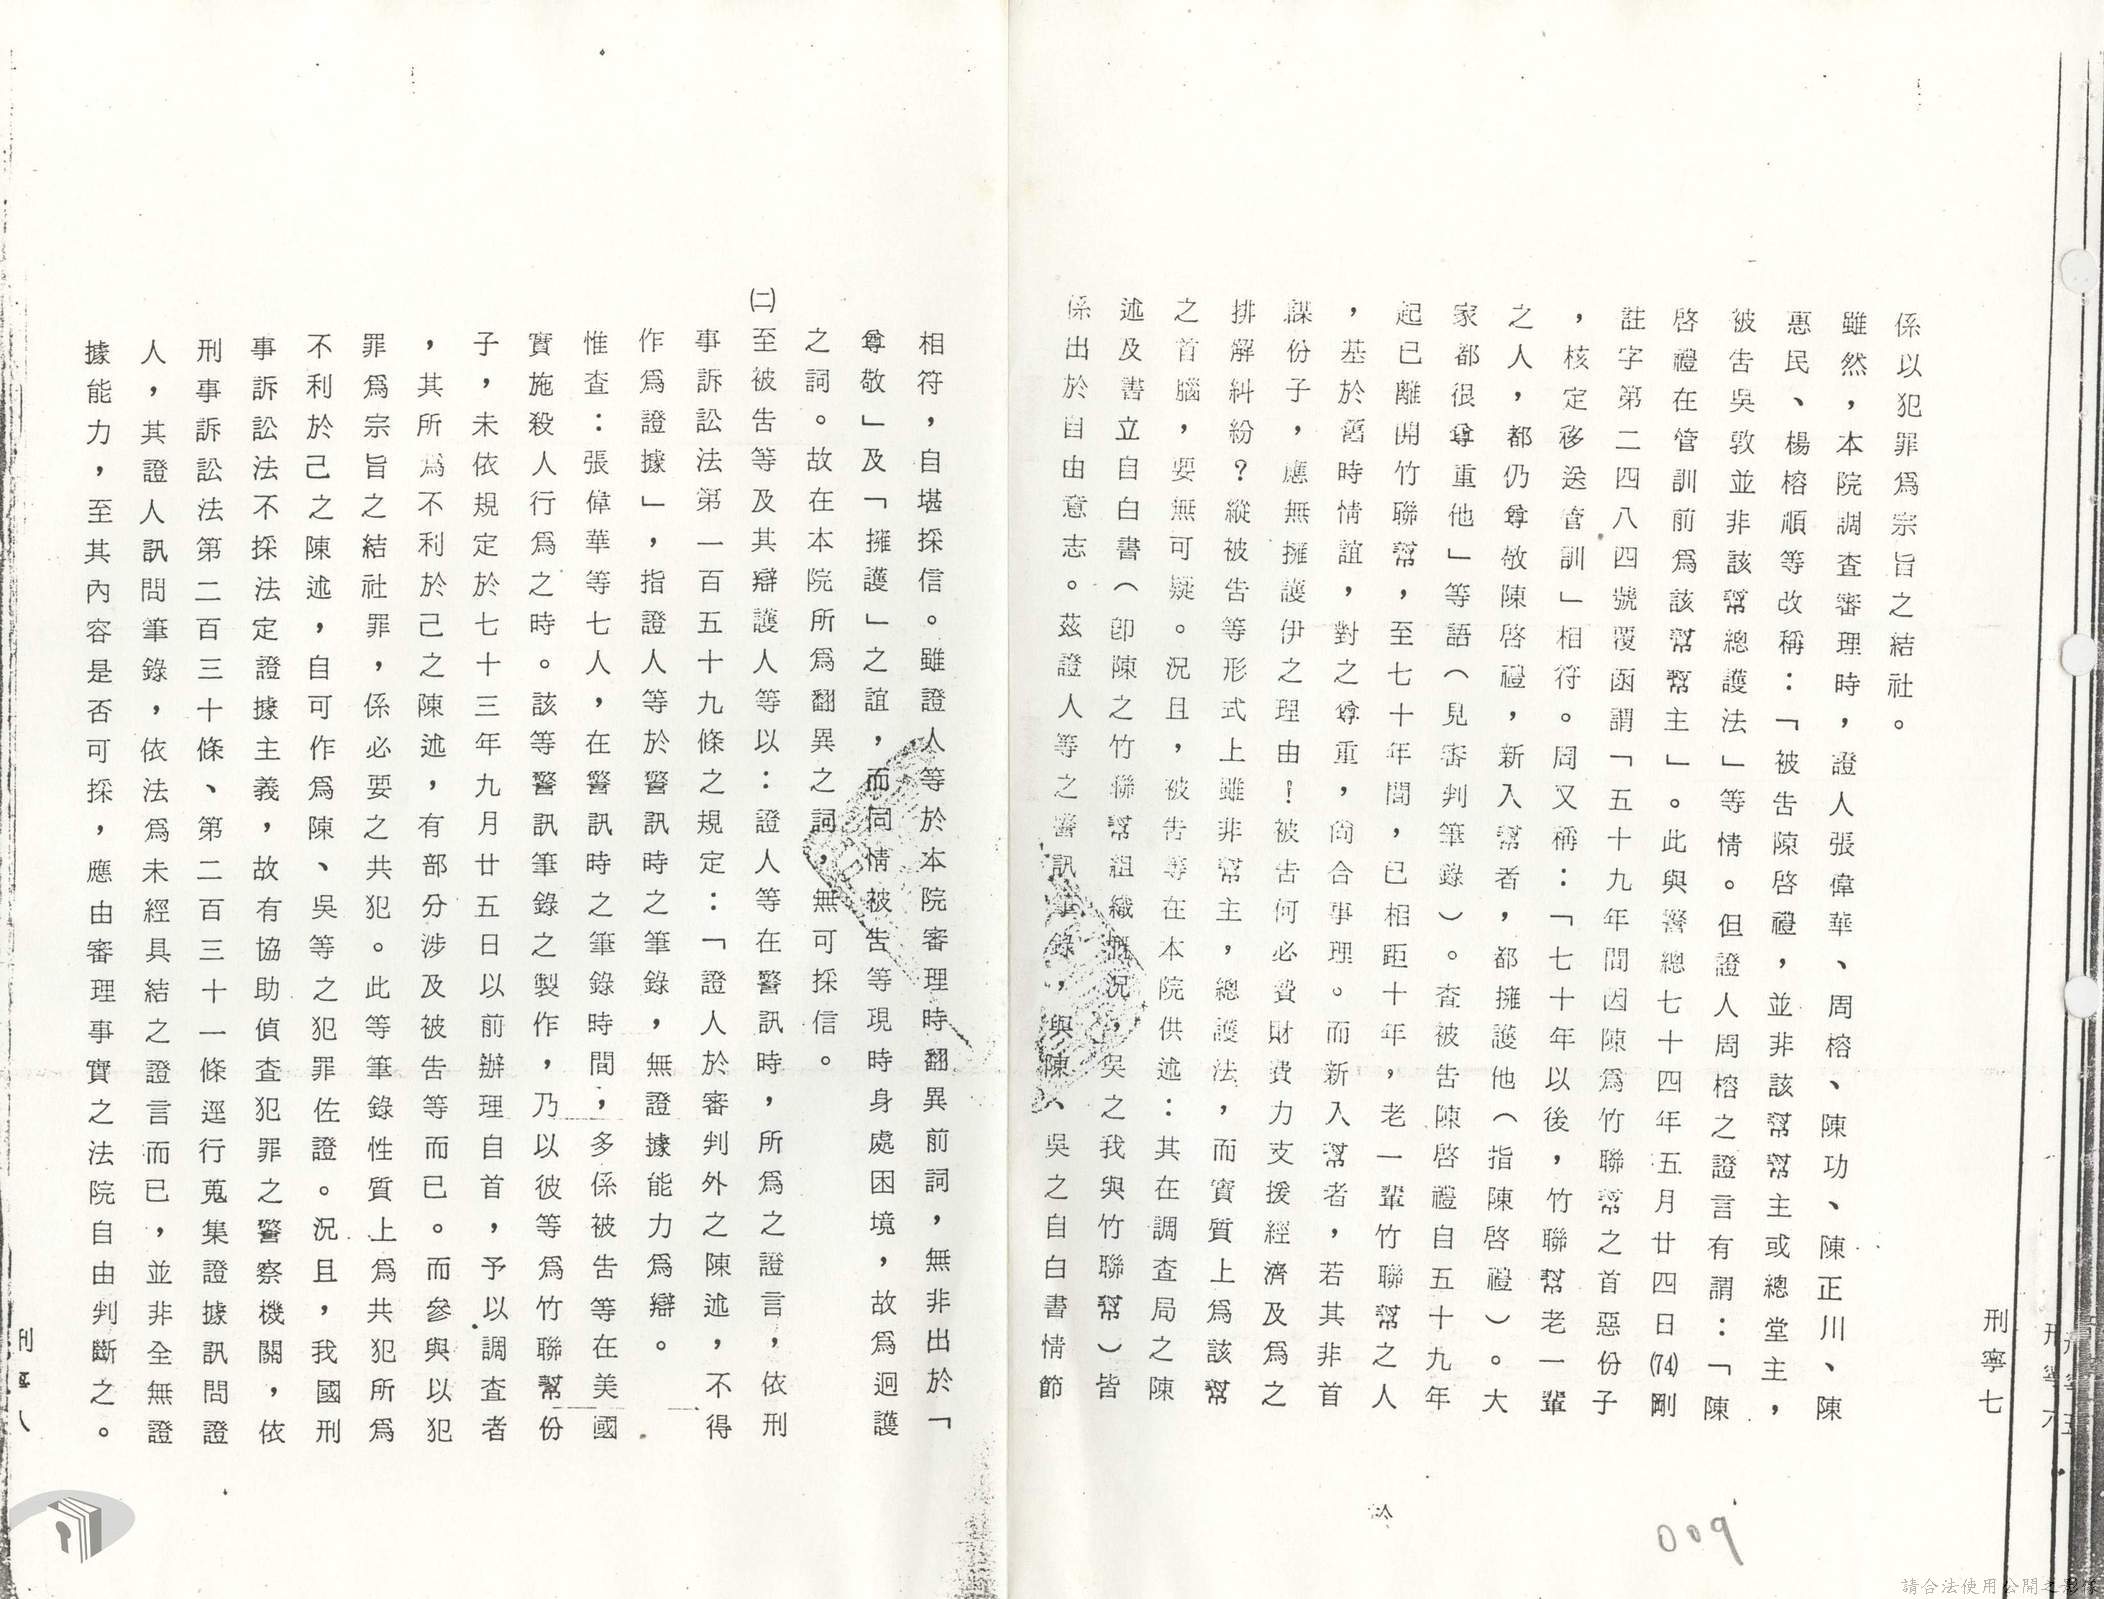 係以犯罪爲宗旨之結社。
雖然，本院調查審理時，證人張偉華、周榕、陳功、陳正川、陳
惠民、楊榕順等改稱：「被告陳啓禮，並非該幫幫主或總堂主，
被告吳敦並非該幫總護法」等情。但證人周榕之證言有謂：「陳
啓禮在管訓前爲該幫幫主」。此與警總七十四年五月廿四日(74)剛
註字第二四八四號覆函謂「五十九年間因陳爲竹聯幫之首惡份子
，核定移送管訓」相符。周又稱：「七十年以後，竹聯幫老一輩
之人，都仍尊敬陳啓禮，新入幫者，都擁護他（指陳啓禮）。大
家都很尊重他」等語（見審判筆錄）。查被告陳啓禮自五十九年
起已離開竹聯幫，至七十年間，已相距十年，老一輩竹聯幫之人
，基於舊時情誼，對之尊重，尚合事理。而新入幫者，若其非首
謀份子，應無擁護伊之理由！被告何必費財費力支援經濟及爲之
排解糾紛？縱被告等形式上雖非幫主，總護法，而實質上爲該幫
之首腦，要無可疑。況且，被告等在本院供述：其在調查局之陳
述及書立自白書（卽陳之竹聯幫組織概況，吳之我與竹聯幫）皆
係出於自由意志。茲證人等之警訊筆錄，與陳、吳之自白書情節
刑寧七
相符，自堪採信。雖證人等於本院審理時翻異前詞，無非出於「
尊敬」及「擁護」之誼，而同情被告等現時身處困境，故爲迴護
之詞。故在本院所爲翻異之詞，無可採信。
㈡至被告等及其辯護人等以：證人等在警訊時，所爲之證言，依刑
事訴訟法第一百五十九條之規定：「證人於審判外之陳述，不得
作爲證據」，指證人等於警訊時之筆錄，無證據能力爲辯。
惟查：張偉華等七人，在警訊時之筆錄時間，多係被告等在美國
實施殺人行爲之時。該等警訊筆錄之製作，乃以彼等爲竹聯幫份
子，未依規定於七十三年九月廿五日以前辦理自首，予以調查者
，其所爲不利於己之陳述，有部分涉及被告等而已。而參與以犯
罪爲宗旨之結社罪，係必要之共犯。此等筆錄性質上爲共犯所爲
不利於己之陳述，自可作爲陳、吳等之犯罪佐證。況且，我國刑
事訴訟法不採法定證據主義，故有協助偵查犯罪之警察機關，依
刑事訴訟法第二百三十條、第二百三十一條逕行蒐集證據訊問證
人，其證人訊問筆錄，依法爲未經具結之證言而已，並非全無證
據能力，至其內容是否可採，應由審理事實之法院自由判斷之。
009
請合法使用公開之影像